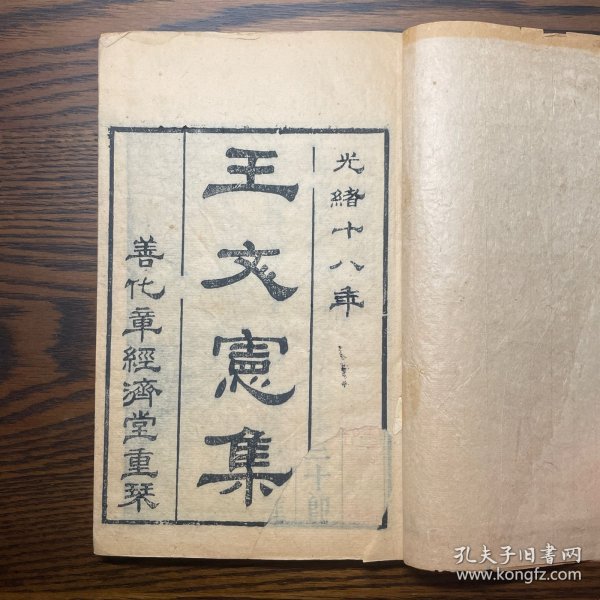 光緒十八年
王文憲集
善化章經濟堂重栞
孔夫子旧书网
www.kongfz.com